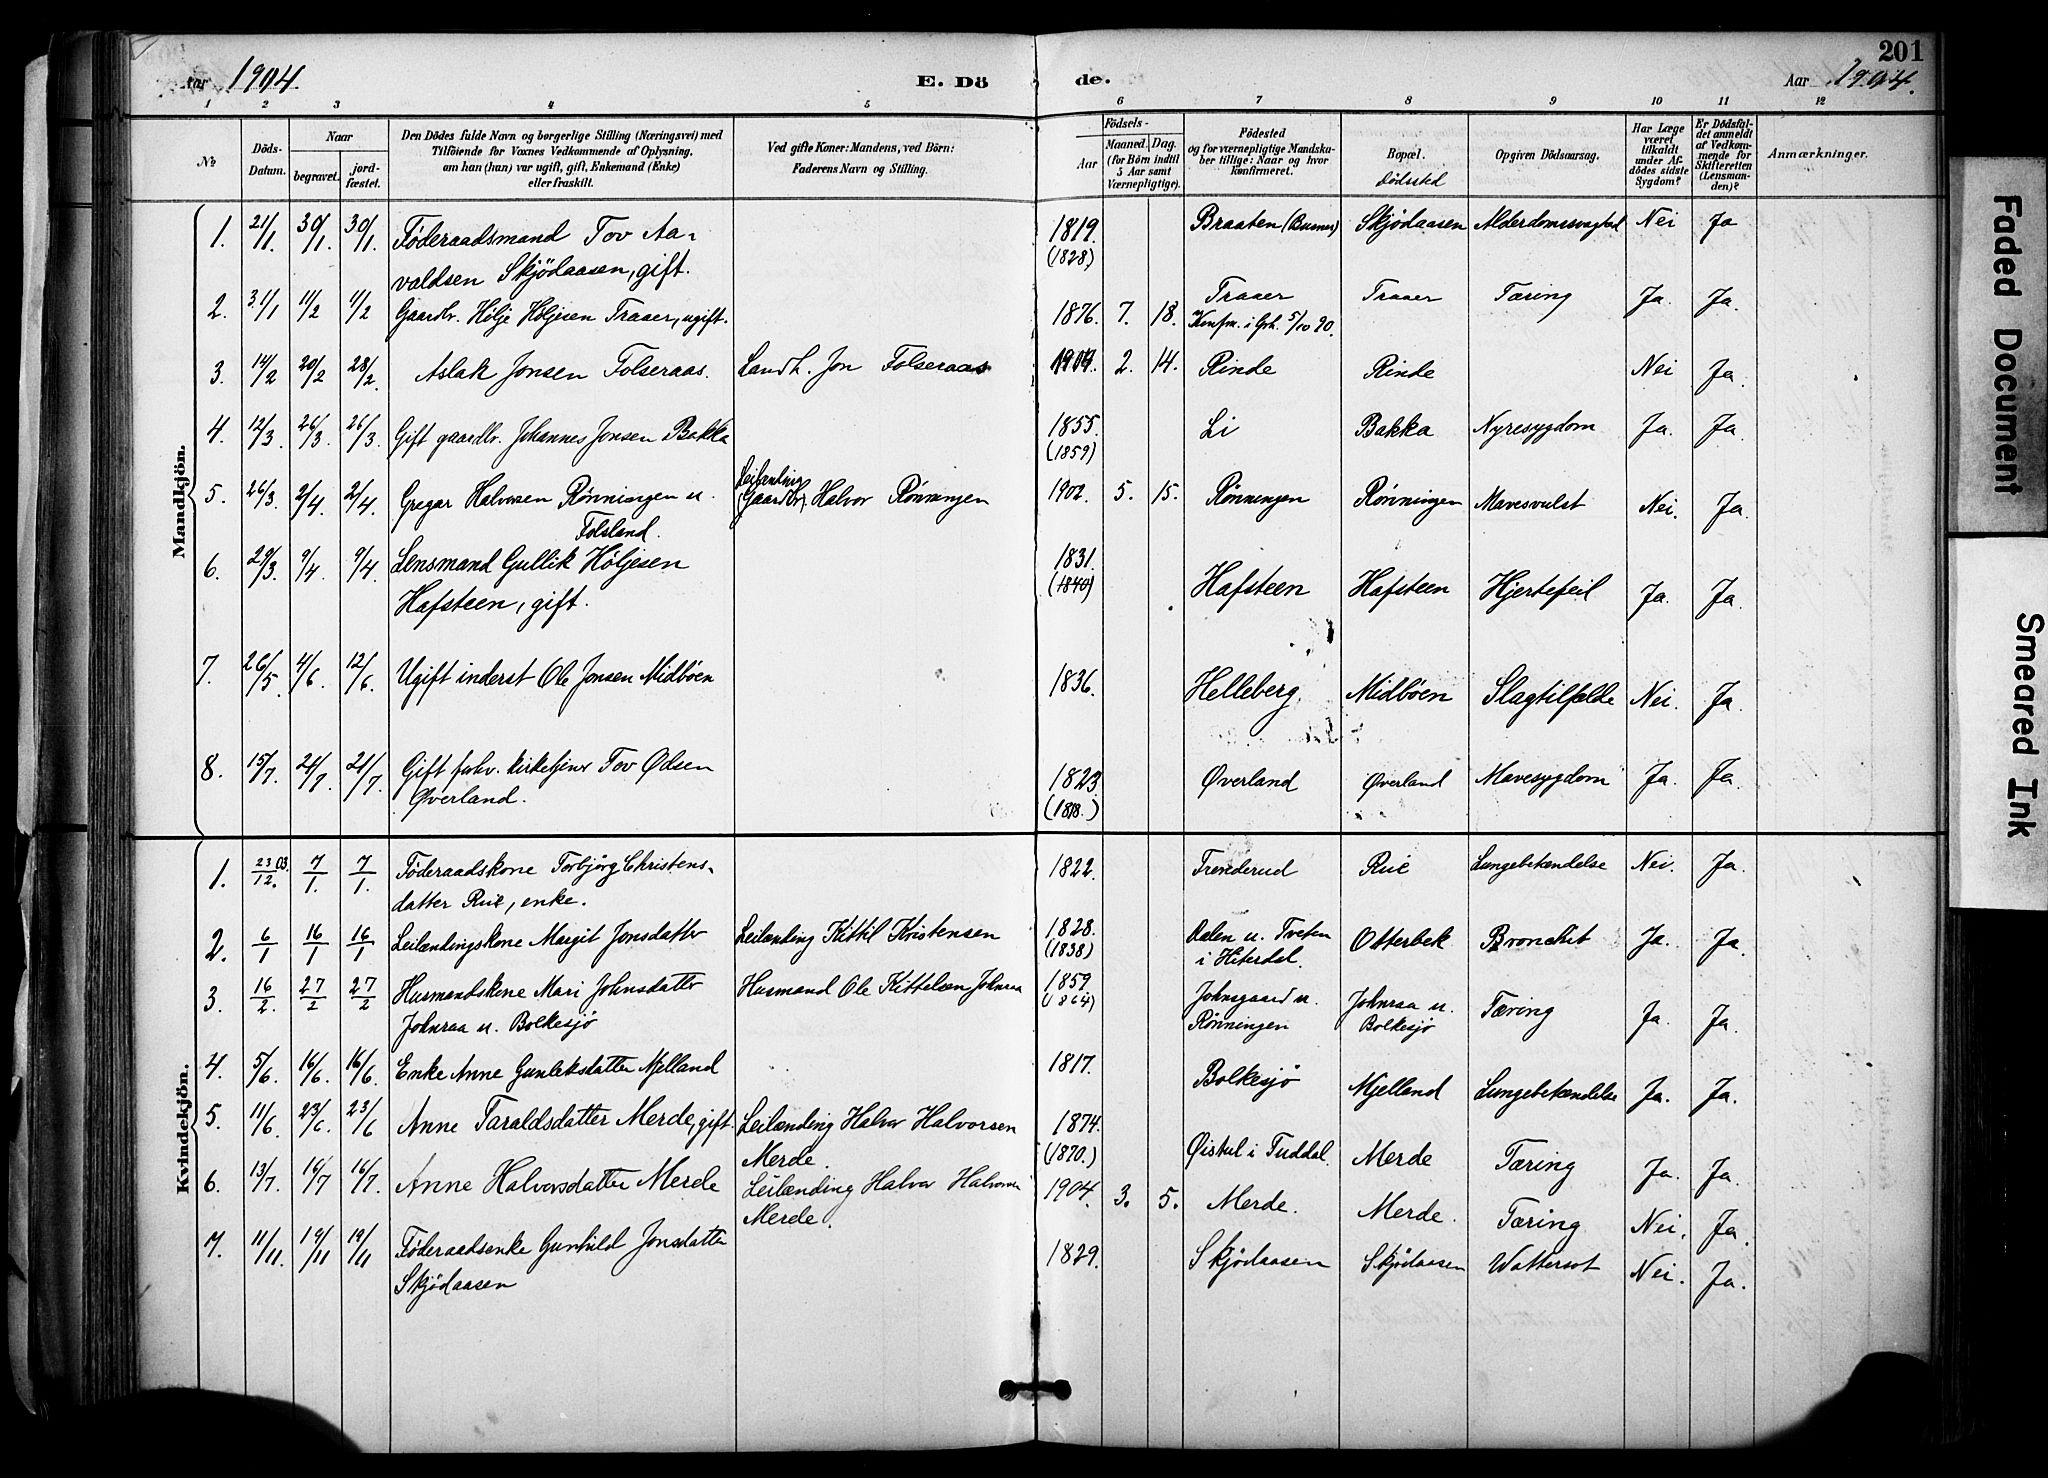 201
Aar 1904. E. Dö de. Aar 1904.
1 2 3 4 5 6 7 8 9 10 11 12
No
Döds-Datum.
Naar
begravet.
jordfæstet.
Den Dödes fulde Navn og borgerlige Stilling (Næringsvei) med
Tilföiende for Voxnes Vedkommende af Oplysning,
om han (hun) var ugift, gift, Enkemand (Enke)
eller fraskilt.
Ved gifte Koner: Mandens, ved Börn:
Faderens Navn og Stilling.
Födsels-
Aar
Maaned. Dag.
(for Börn indtil
5 Aar samt
Værnepligtige).
Födested
og for værnepligtige Mandskaber
tillige: Naar og hvor
konfirmeret.
Bopæl.
Dödssted
Opgiven Dödsaarsag.
Har Læge
været
tilkaldt
under Afdödes
sidste
Sygdom?
Er Dödsfaldet
anmeldt
af Vedkommende
for
Skifteretten
(Lensmanden)?
Anmærkninger.
Mandkjön.
1. 21/1. 30/1. 30/1. Föderaadsmand Tov Aa- 1819. Braaten Skjödaasen Alderdomssvaghed Nei Ja
valdsen Skjödaasen, gift. (1828)
2. 31/1 11/2 11/2 Gaardbr. Hölje Höljesen Traaer, ugift. 1876. 7. 18. Traaer Traaer Tæring Ja. Ja.
Konfm. i Grh. 5/10 90.
3. 14/2 20/2 28/2. Aslak Jonsen Folseraas. Landh. Jon Folseraas 1904. 2. 14. Rinde Rinde Nei Ja.
4. 12/3. 26/3. 26/3. Gift gaardbr. Johannes Jonsen Bakka 1855. Li Bakka Nyresygdom Ja. Ja.
(1859)
5. 26/3. 2/4. 2/4. Gregar Halvorsen Rönningen u. Leilending (Gaardbr). Halvor Rönningen 1902. 5. 15. Rönningen Rönningen Mavesvulst Nei. Ja.
Folsland.
6. 29/3. 9/4. 9/4. Lensmand Gullik Höljesen 1831. Hafsteen Hafsteen Hjertefeil Ja. Ja.
Hafsteen, gift. (1840)
7. 26/5. 4/6. 12/6. Ugift inderst Ole Jonsen Midböen 1836. Helleberg. Midböen Slagtilfælde Nei. Ja.
8. 15/7. 24/7. 24/7. Gift forhv. kirketjener Tov Ödsen 1823. Överland Överland Mavesygdom Ja. Ja.
Överland. (1818.)
Kvindekjön.
1. 23/12. 03. 7/1. 7/1. Föderaadskone Torbjörg Christens- 1822. Trenderud Rue Lungebetændelse Nei. Ja.
datter Rue, enke.
2. 6/1 16/1 16/1 Leilændingskone Margit Jonsdatter Leilænding Kittil Kristensen 1828. Dalen u. Tveten Otterbek Bronchit Ja. Ja.
(1838) i Hiterdal.
3. 16/2. 27/2 27/2 Husmandskone Mari Johnsdatter Husmand Ole Kittelsen Johnraa 1859 Johnsgaard u. Johnraa u. Tæring Ja. Ja.
Johnraa u. Bolkesjö (1864) Rönningen Bolkesjö
4. 5/6. 16/6. 16/6. Enke Anne Gunleksdatter Mjelland 1817. Bolkesjö Mjelland Lungebetændelse Ja. Ja.
5. 11/6. 23/6 23/6 Anne Taraldsdatter Merde, gift. Leilænding Halvor Halvorsen 1874. Öistul i Tuddal. Merde Tæring Ja. Ja.
Merde. (1870.)
6. 13/7. 16/7 16/7. Anne Halvorsdatter Merde Leilænding Halvor Halvorsen 1904. 3. 5. Merde. Merde. Tæring Nei. Ja.
Merde.
7. 11/11. 19/11 19/11 Föderaadsenke Gunhild Jonsdatter 1829. Skjödaasen Skjödaasen Wattersot Nei. Ja.
Skjödaasen
Faded Document
Smeared Ink